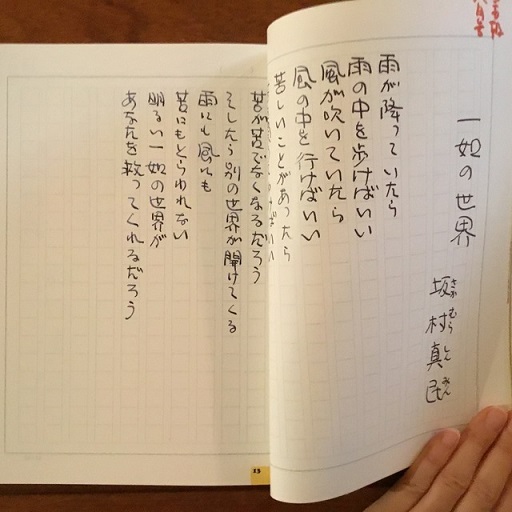 一如の世界
坂村真民
さかむらしんみん
雨が降っていたら
雨の中を歩けばいい
風が吹いていたら
風の中を行けばいい
苦しいことがあったら
苦が苦でなくなるだろう
そしたら別の世界が開けてくる
雨にも風にも
苦にもとらわれない
明るい一如の世界が
あなたを救ってくれるだろう
23